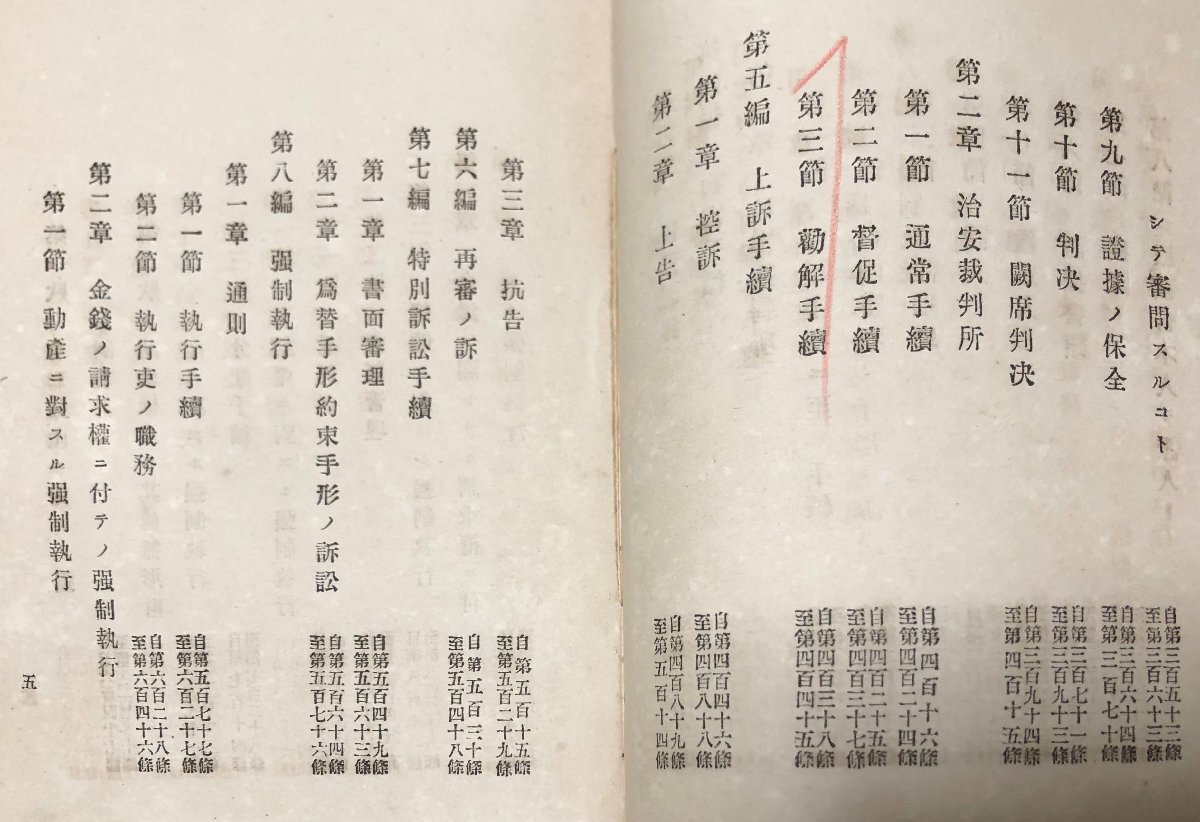 シテ審問スルコト 自第三百五十三條 至第三百六十三條
第九節 證據ノ保全 自第三百六十四條 至第三百七十條
第十節 判決 自第三百七十一條 至第三百九十三條
第十一節 闕席判決 自第三百九十四條 至第四百十五條
第二章 治安裁判所
第一節 通常手續 自第四百十六條 至第四百二十四條
第二節 督促手續 自第四百二十五條 至第四百三十七條
第三節 勸解手續 自第四百三十八條 至第四百四十五條
第五編 上訴手續
第一章 控訴 自第四百四十六條 至第四百八十八條
第二章 上告 自第四百八十九條 至第五百十四條
第三章 抗告 自第五百十五條 至第五百二十九條
第六編 再審ノ訴 自第五百三十條 至第五百四十八條
第七編 特別訴訟手續
第一章 書面審理 自第五百四十九條 至第五百六十三條
第二章 爲替手形約束手形ノ訴訟 自第五百六十四條 至第五百七十六條
第八編 强制執行
第一章 通則
第一節 執行手續 自第五百七十七條 至第六百二十七條
第二節 執行吏ノ職務 自第六百二十八條 至第六百四十六條
第二章 金錢ノ請求權ニ付テノ强制執行
第一節 動產ニ對スル强制執行
五